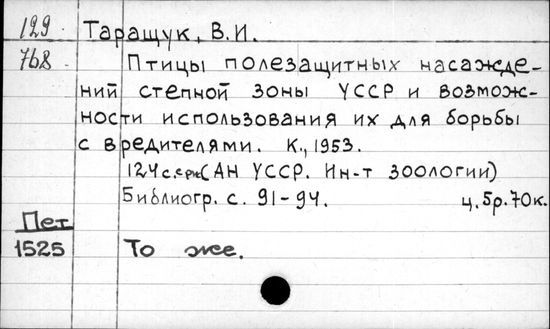 129 Таращук, В.И.
768 Птицы полезащитных насажде-
ний степной зоны УССР и возмож-
ности использования их для борьбы
с вредителями. К., 1953.
124с. (АН УССР. Ин-т зоологии)
Библиогр. с. 91-94. ц. 5р.70к.
Пет
1525 То же.